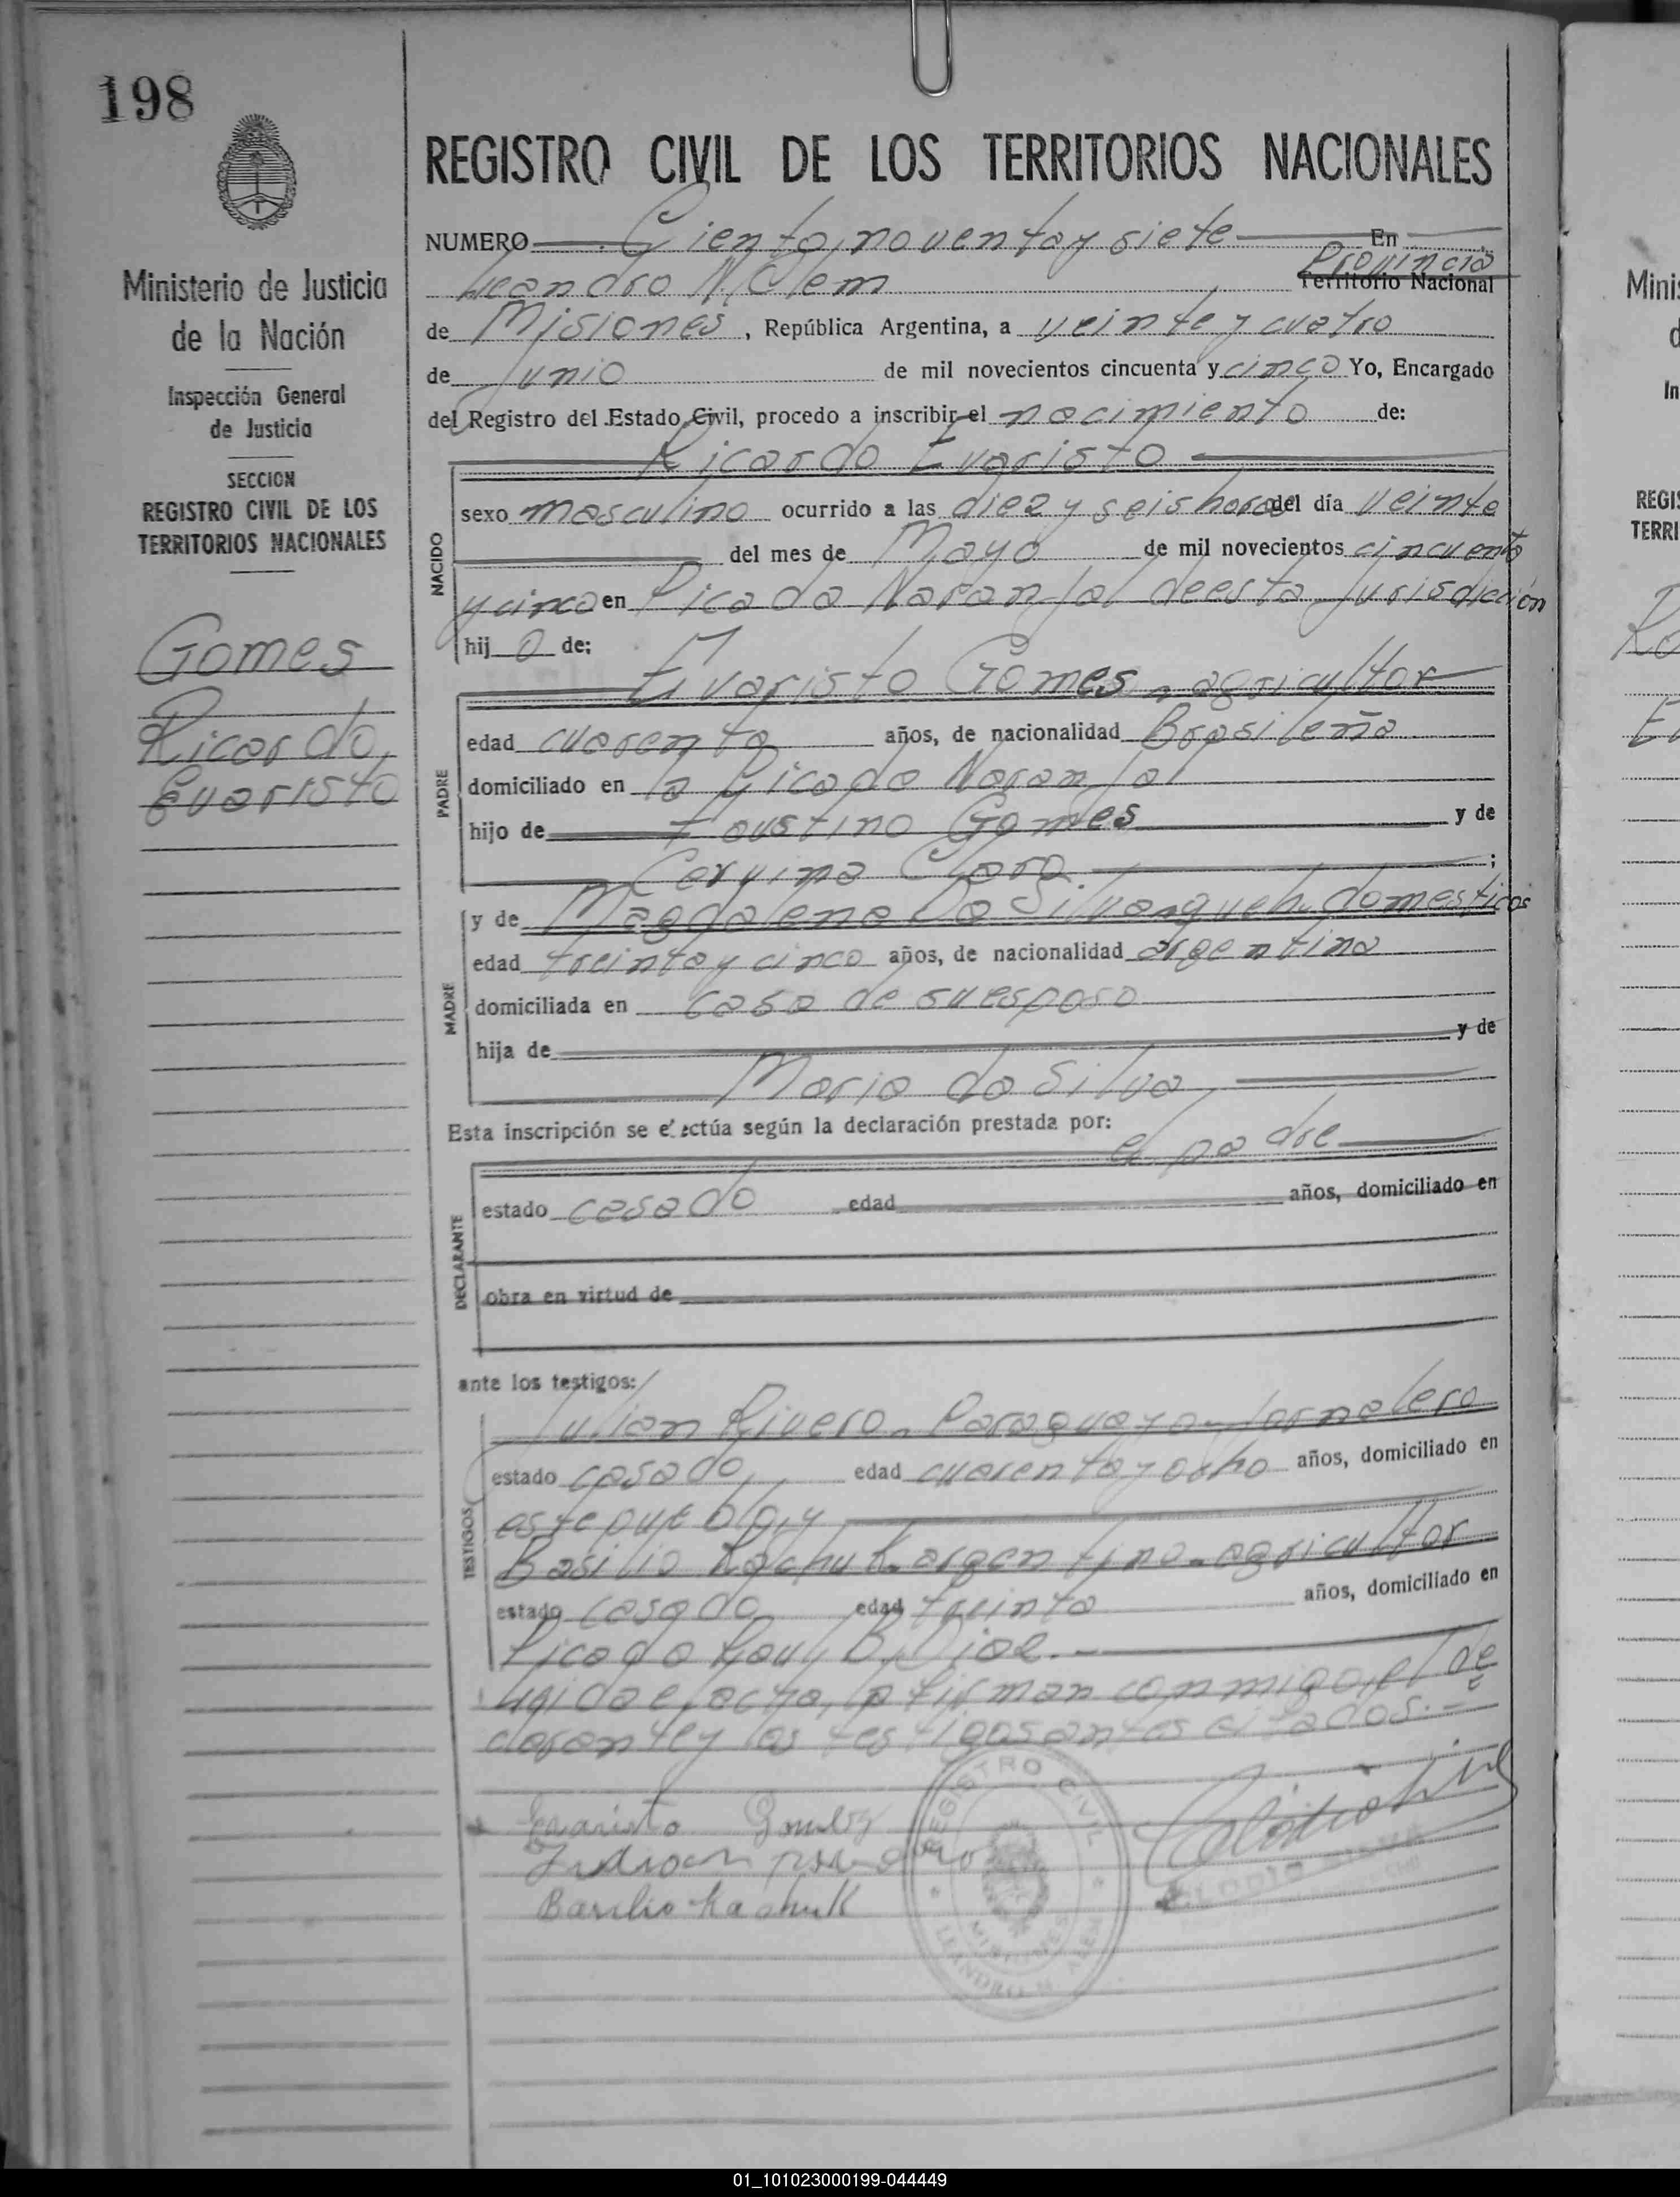 198
REGISTRO CIVIL DE LOS TERRITORIOS NACIONALES
Ministerio de Justicia
de la Nación
Inspección General
de Justicia
SECCION
REGISTRO CIVIL DE LOS
TERRITORIOS NACIONALES
Gomes
Ricardo,
Evaristo
NUMERO Ciento, noventa y siete En
Leandro N. Alem Provincia Territorio Nacional
de Misiones, República Argentina, a veinte y cuatro
de Junio de mil novecientos cincuenta y cinco Yo, Encargado
del Registro del Estado Civil, procedo a inscribir el nacimiento de:
Ricardo Evaristo
NACIDO
sexo masculino ocurrido a las diez y seis horas del día veinte
del mes de Mayo de mil novecientos cincuenta
y cinco en Picada Naranjal de esta Jurisdicción
hijo de:
Evaristo Gomes, agricultor
PADRE
edad cuarenta años, de nacionalidad Brasileña
domiciliado en la Picada Naranjal
hijo de Faustino Gomes y de
Clara ;
MADRE
y de Magdalena Da Silva, queh. domesticos
edad treinta y cinco años, de nacionalidad argentina
domiciliada en casa de su esposo
hija de y de
Maria da Silva
Esta inscripción se efectúa según la declaración prestada por:
el padre
DECLARANTE
estado casado edad años, domiciliado en
obra en virtud de
ante los testigos:
TESTIGOS
Julian Rivero. Paraguayo-Jornalero
estado casado, edad cuarenta y ocho años, domiciliado en
este pueblo, y
Basilio Kachuk. argentino-agricultor
estado casado edad treinta años, domiciliado en
Picada
Leida el acta, la firman conmigo, el de
clarante y los testigos antes citados.
Evaristo
Basilio Kachuk
REGISTRO CIVIL
MISIONES
LEANDRO N. ALEM
01_101023000199-044449